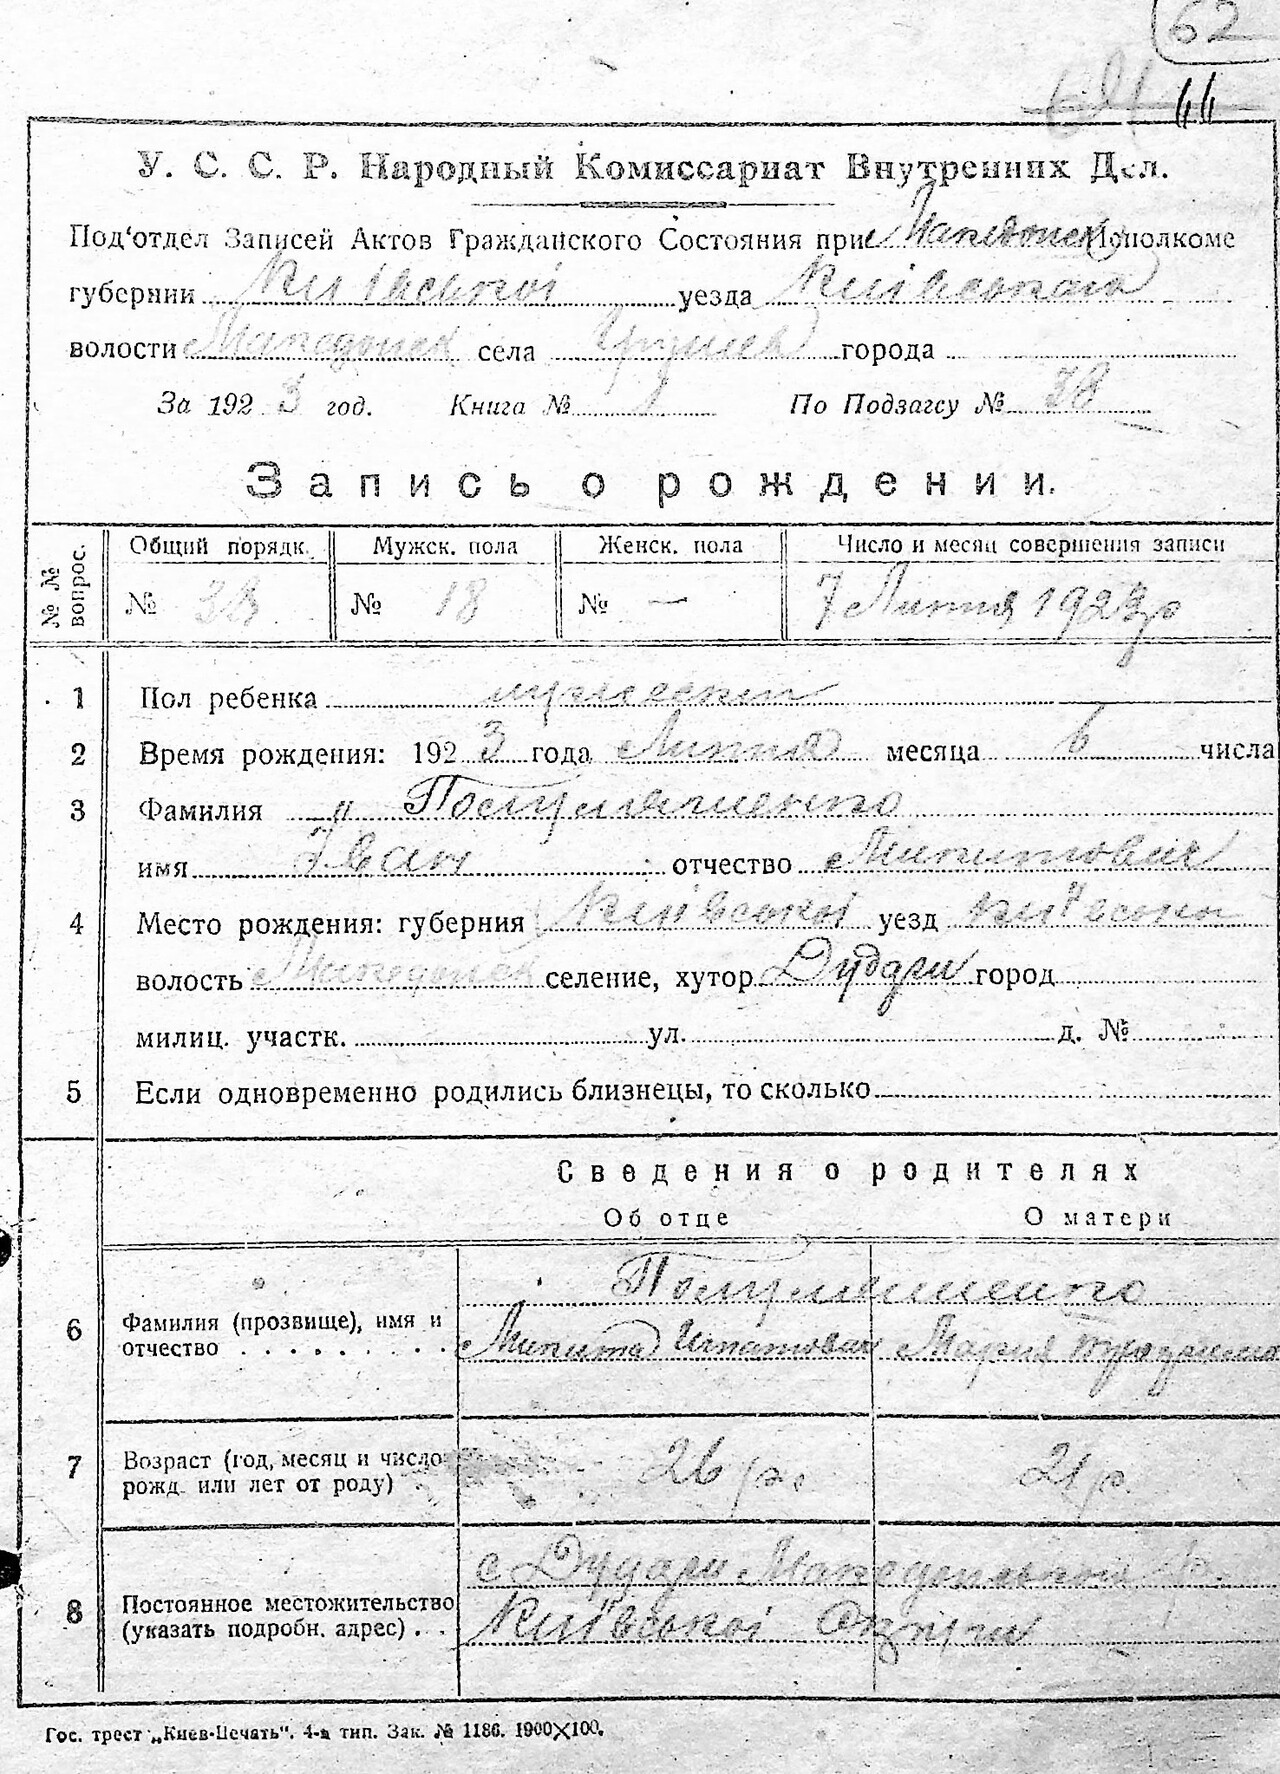 62
У. С. С. Р. Народный Комиссариат Внутренних Дел.
Под'отдел Записей Актов Гражданского Состояния при Македонск Исполкоме
губернии Київської уезда Київського
волости Македонск села города
За 1923 год. Книга № По Подзагсу № 38
Запись о рождении.
№ № вопрос. Общий порядк. Мужск. пола Женск. пола Число и месяц совершения записи
№ 38 № 18 № — 7 Липня 1923 р
1 Пол ребенка
2 Время рождения: 1923 года Липня месяца 6 числа
3 Фамилия
имя Іван отчество Микитович
4 Место рождения: губерния Київської уезд
волость Македонск селение, хутор Дударі город
милиц. участк. ул. д. №
5 Если одновременно родились близнецы, то сколько
Сведения о родителях
Об отце О матери
6 Фамилия (прозвище), имя и
отчество Микита Игнатович Мария
7 Возраст (год, месяц и число 26 р. 21 р.
рожд. или лет от роду)
с Дударі
8 Постоянное местожительство Київської Округи
(указать подробн. адрес)
Гос. трест „Киев-Печать". 4-я тип. Зак. № 1186. 1900X100.